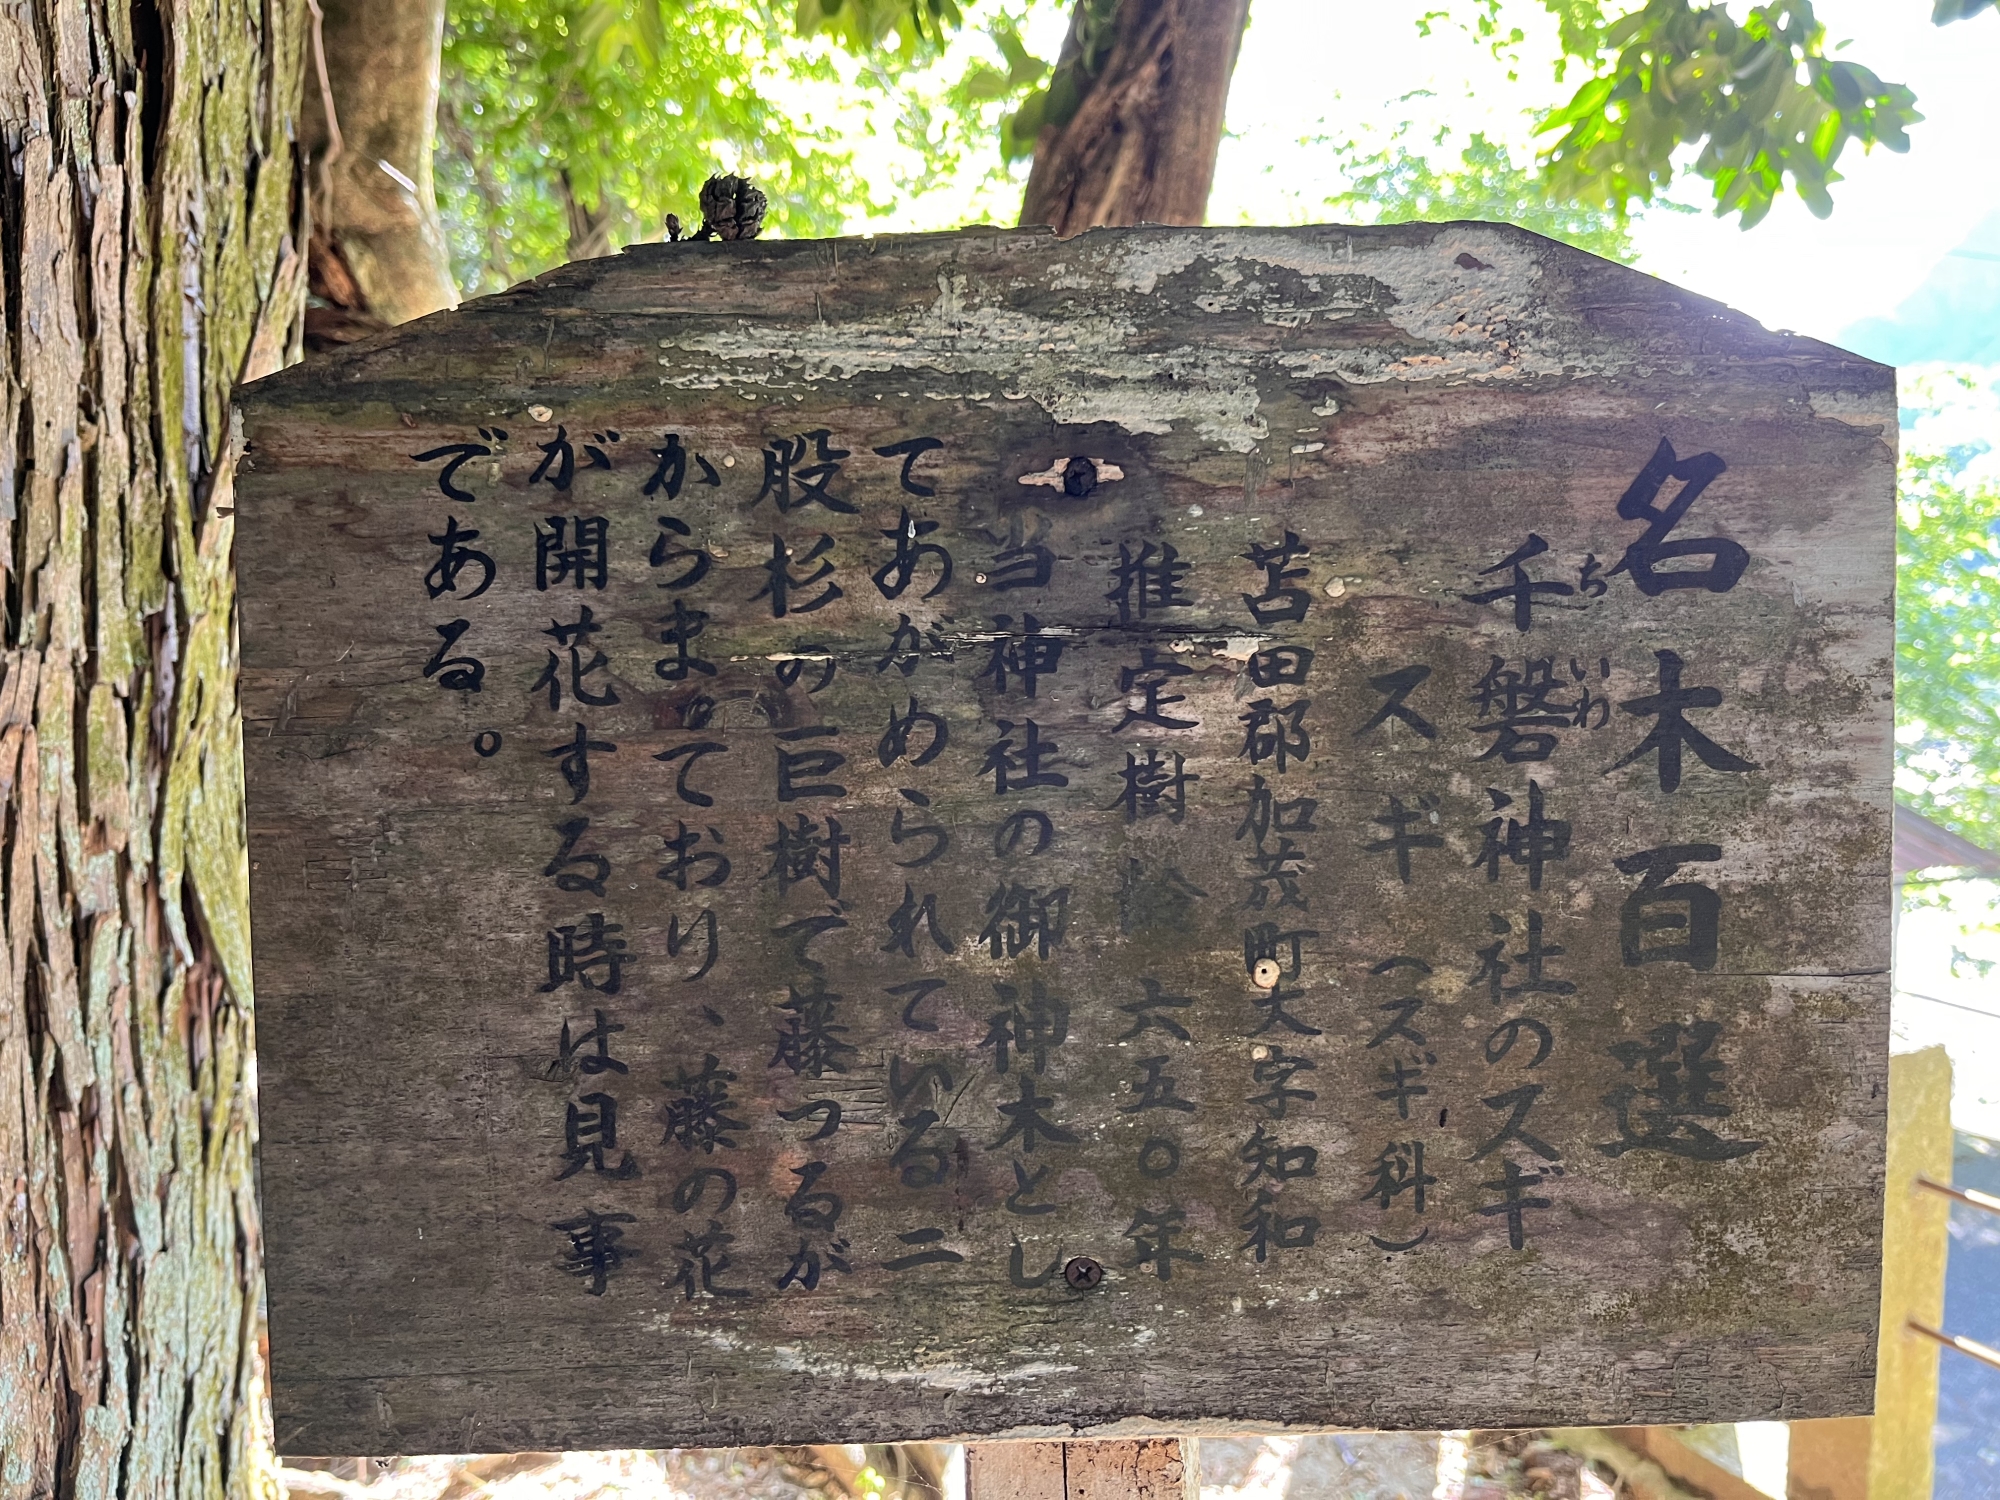 名木百選
千磐神社のスギ
ちいわ
スギ(スギ科)
苫田郡加茂町大字知和
推定樹齢六五〇年
当神社の御神木とし
てあがめられている二
股杉の巨樹で藤つるが
からまっており、藤の花
が開花する時は見事
である。